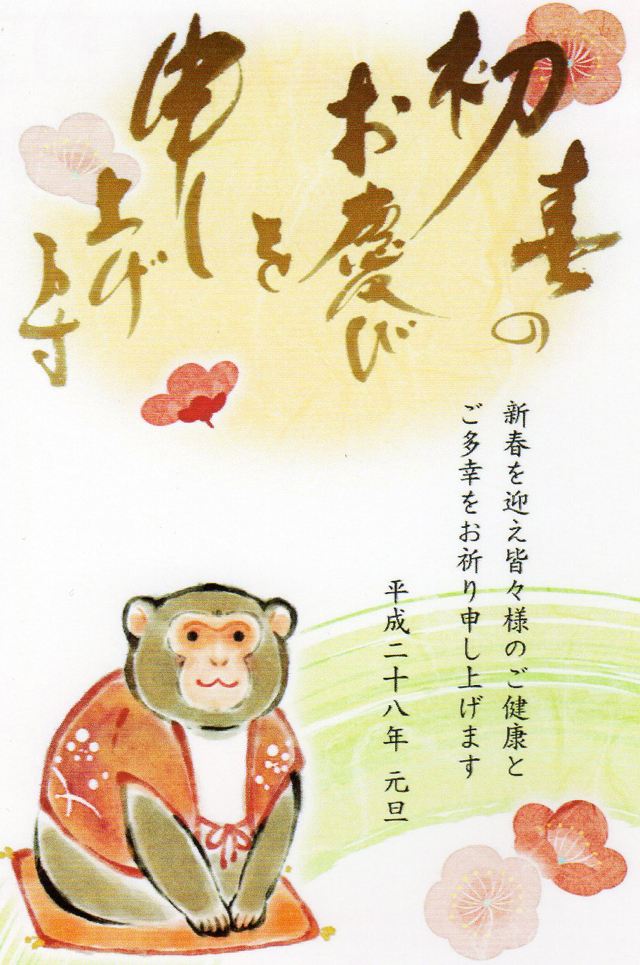 初春の
お慶び
を
申し
上げ
ます
新春を迎え皆々様のご健康と
ご多幸をお祈り申し上げます
平成二十八年 元旦